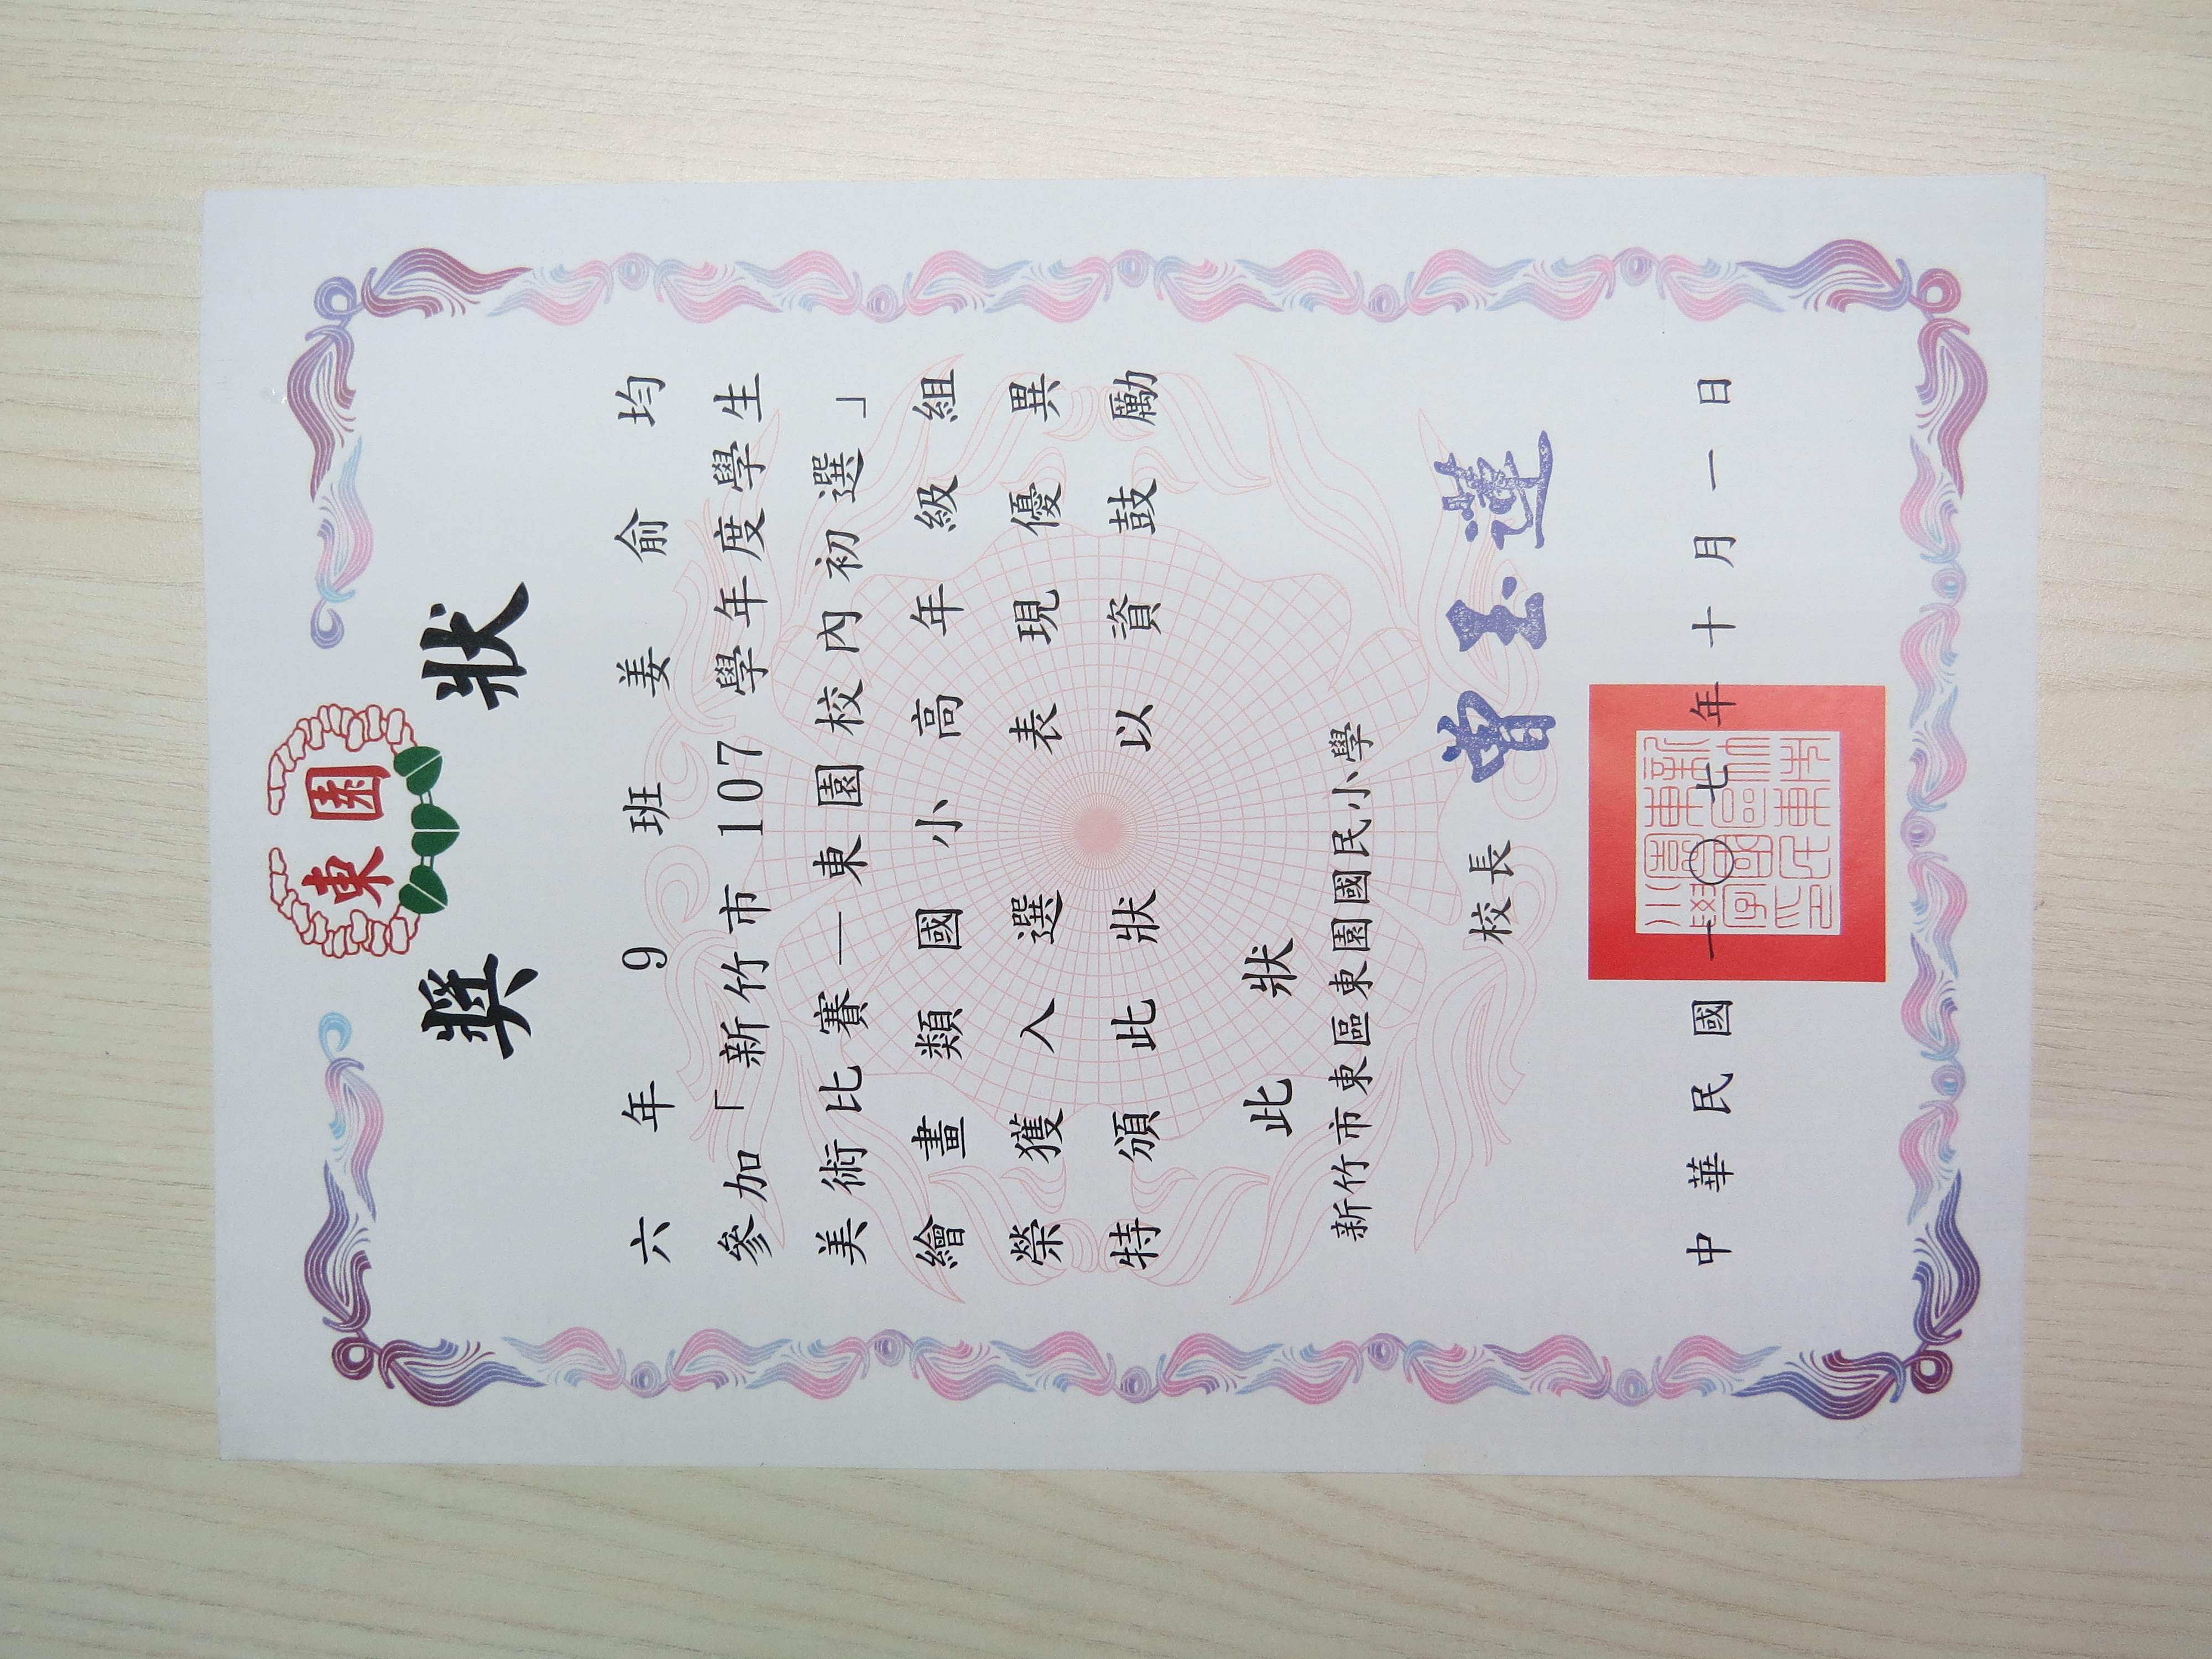 東園
獎狀
六年9班姜俞均
參加「新竹市107學年度學生
美術比賽—東園校內初選」
繪畫類國小高年級組
榮獲入選表現優異
特頒此狀以資鼓勵
此狀
新竹市東區東園國民小學
校長 曾玉蓮
中華民國一〇七年十月一日